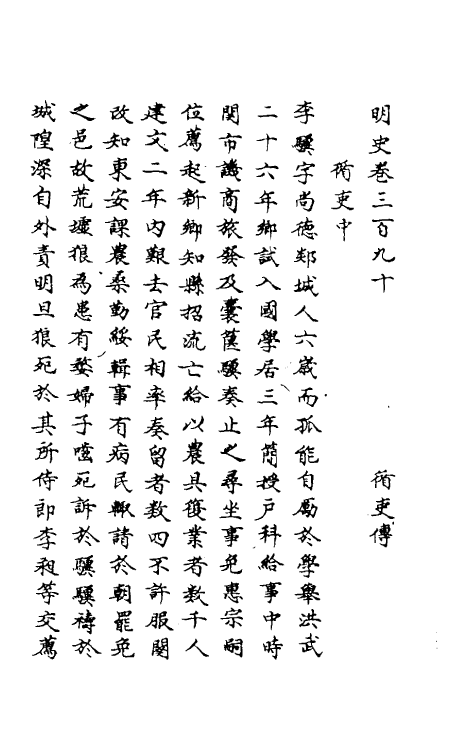 明史卷三百九十　　循吏傳
循吏中
李驥字尚德郯城人六歲而孤能自厲於學舉洪武
二十六年鄉試入國學居三年簡授戶科給事中時
関市譏商旅發及囊篋驥奏止之尋坐事免惠宗嗣
位薦起新鄉知縣招流亡給以農具復業者数千人
建文二年內艱去官民相率奏留者数四不許服闋
改知東安課農桑勤綏輯事有病民輒請於朝罷免
之邑故荒墟狼為患有嫠婦子噬死訴於驥驥禱於
城隍深自外責明旦狼死於其所侍郎李昶等交薦